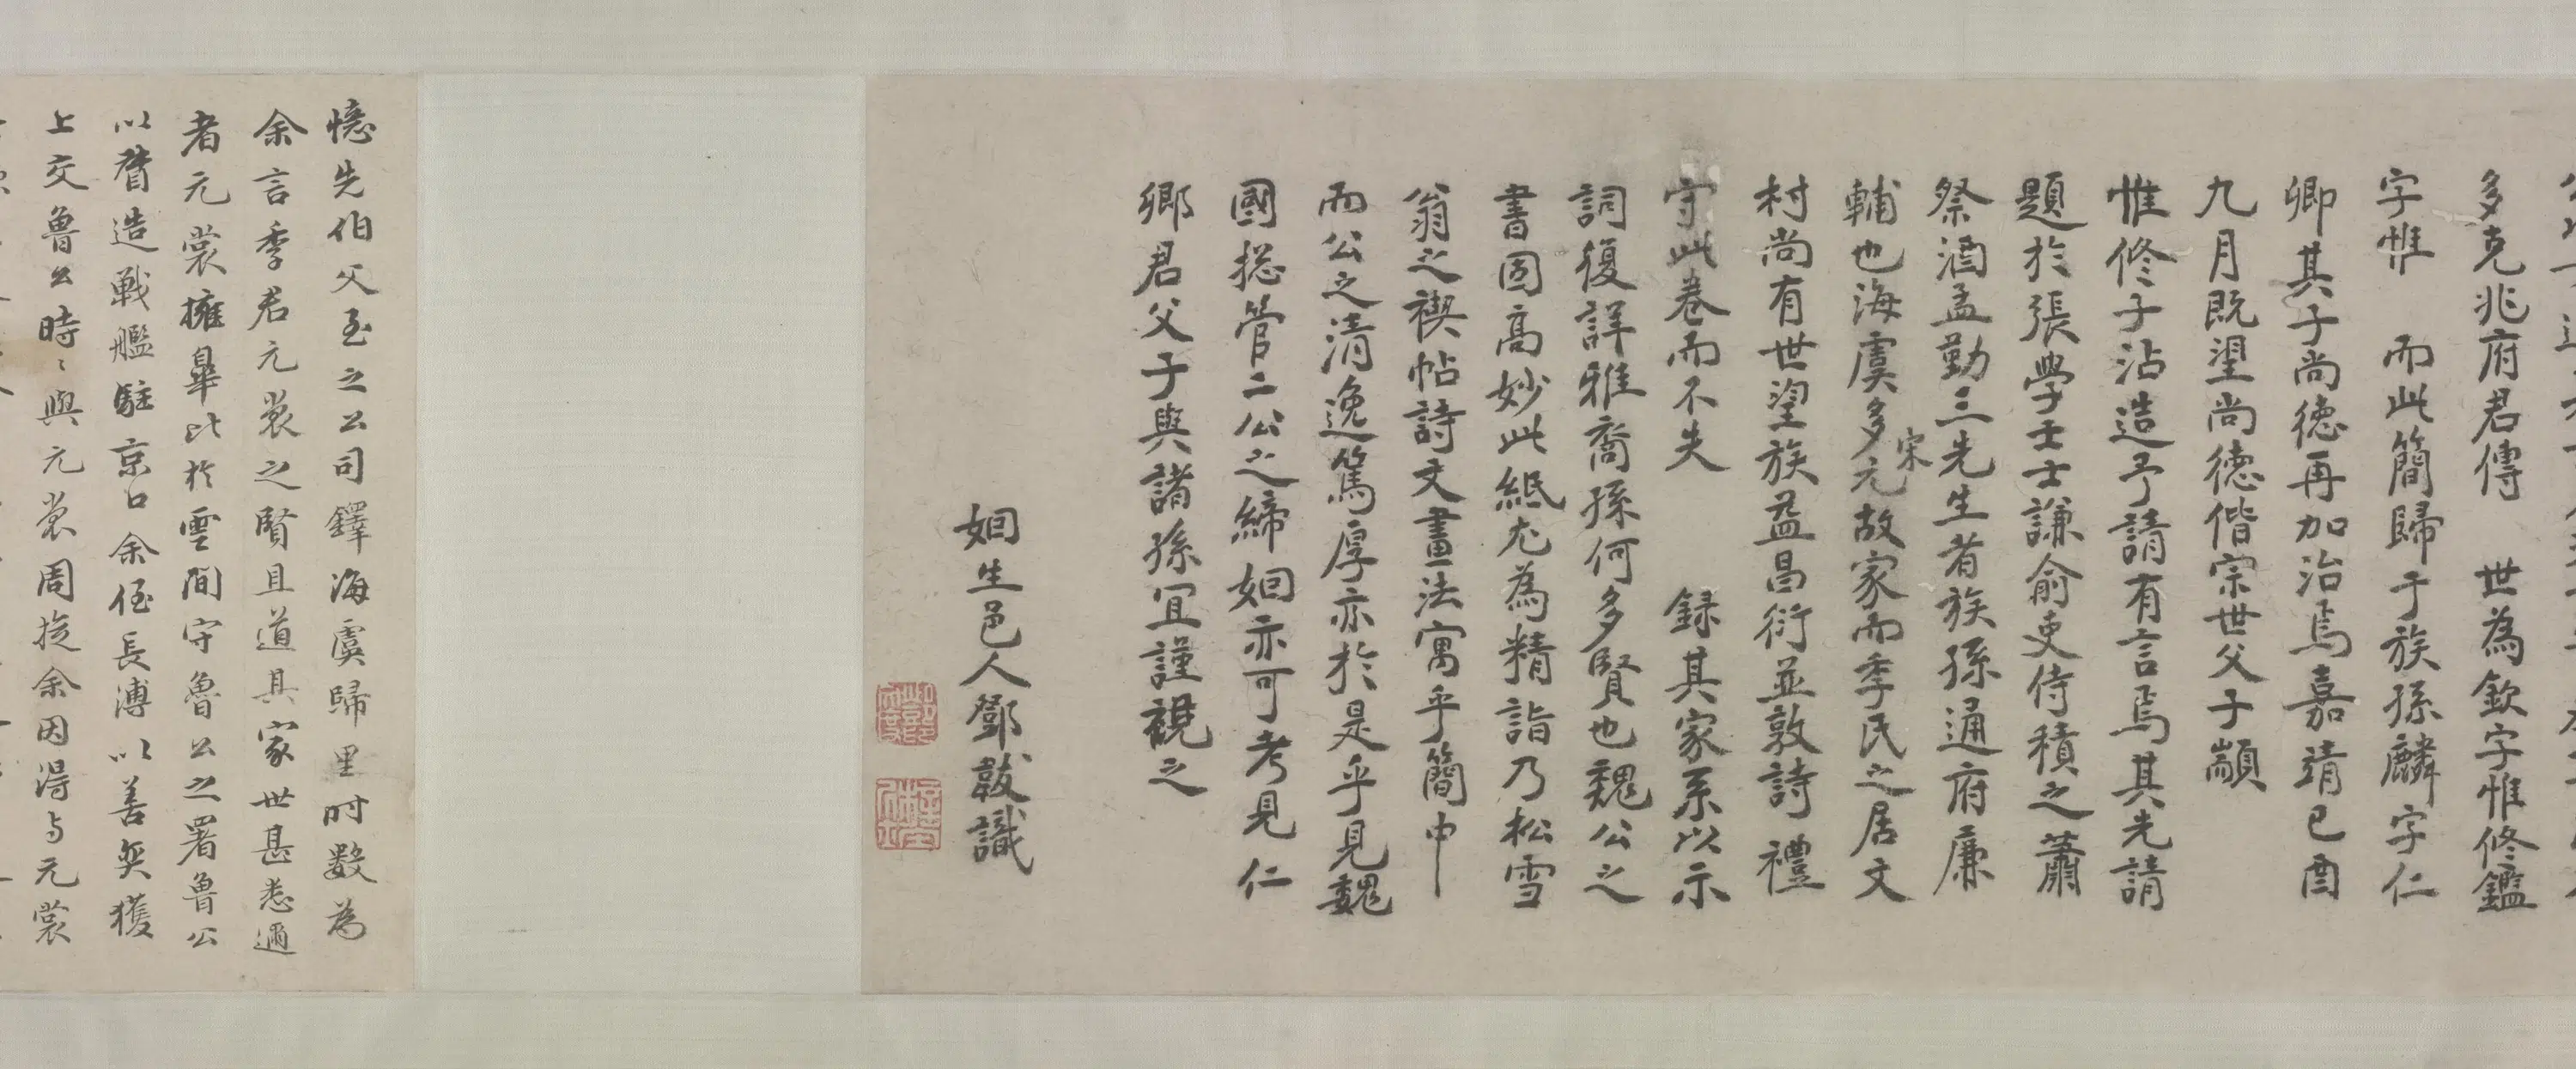 多克兆府君傳 世為欽字惟修鑑
字惟 而此簡歸于族孫麟字仁
卿其子尚德再加治焉嘉靖己酉
九月既望尚德偕宗世父子顓
惟修子沾造予請有言焉其先請
題於張學士士謙俞吏侍積之蕭
祭酒孟勤三先生者族孫通府廉
輔也海虞多宋元故家而季氏之居文
村尚有世望族益昌衍並敦詩禮
守此卷而不失 録其家系以示
詞復詳雅裔孫何多賢也魏公之
書固高妙此紙尤為精詣乃松雪
翁之禊帖詩文畫法寓乎簡中
而公之清逸篤厚亦於是乎見魏
國捴管二公之締姻亦可考見仁
卿君父子與諸孫宜謹襯之
姻生邑人鄧韍識
憶先伯父至之公司鐸海虞歸里時數為
余言季君元裳之賢且道其家世甚悉邇
者元裳擁臯比於雲間守魯公之署魯公
以督造戰艦駐京口余侄長溥以善奕獲
上交魯公時時與元裳周旋余因得与元裳